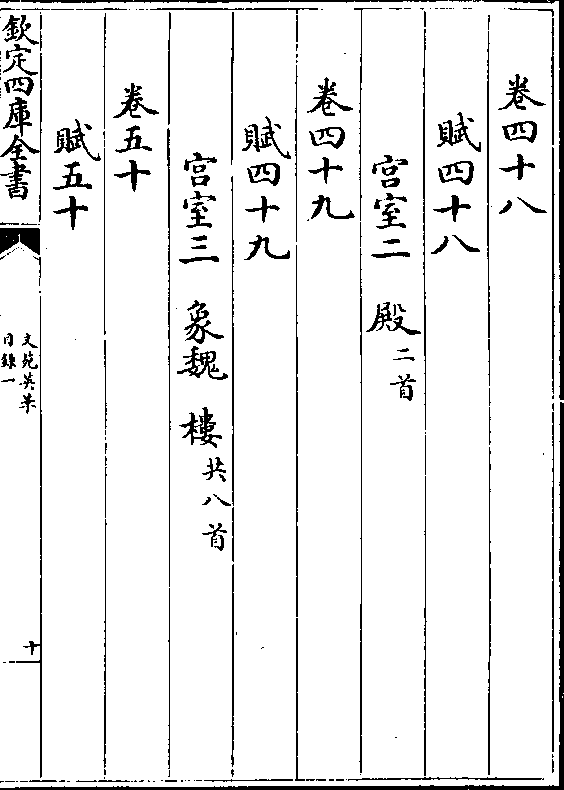 卷四十八
賦四十八
宫室二 殿二首
卷四十九
賦四十九
宫室三 象魏 樓共八首
卷五十
賦五十
欽定四庫全書
文苑英華
目錄一
十